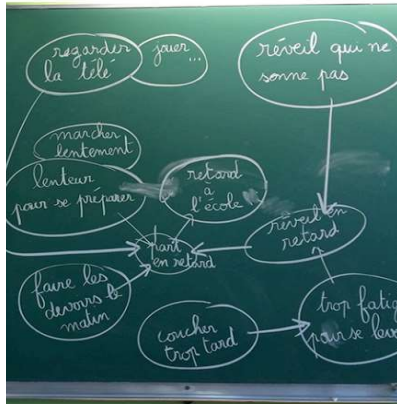 regarder
la télé
jouer
...
réveil qui ne
sonne pas
marcher
lentement
lenteur
pour se préparer
retard
à
l'école
réveil en
retard
part
en retard
faire les
devoirs le
matin
coucher
trop tard
trop fatig
pour se leve